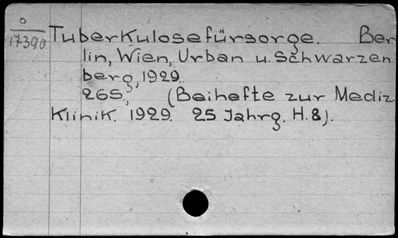 o
17390 Tuberkulosefürsorge. Ber
lin, Wien, Urban u. Schwarzen
berg, 1929.
265, (Beihefte zur Mediz
Klinik. 1929. 25 Jahrg. H. 8).